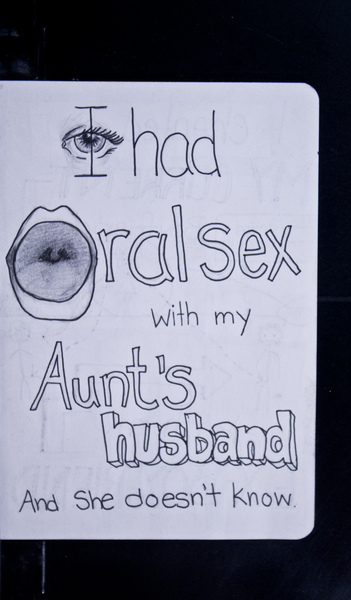 I had
Oral sex
with my
Aunt's
husband
And She doesn't know.